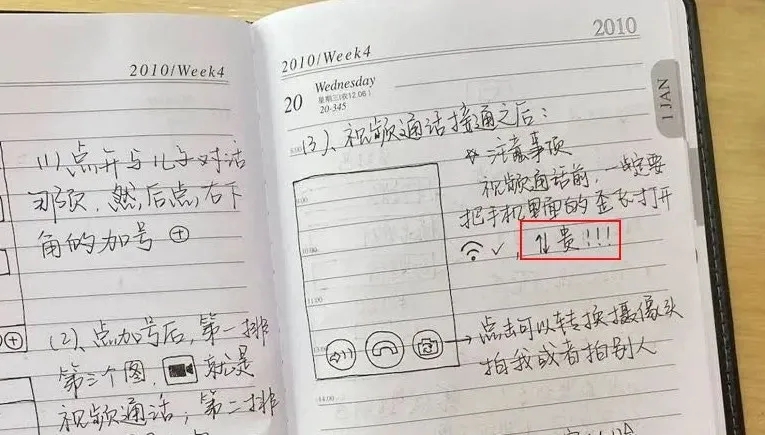 2010/Week4
(1)、点开与儿子对话
那页，然后点右下
角的加号 ⊕
(2)、点加号后，第一排
第三个图，就是
视频通话，第二排
2010/Week4
2010
1 JAN
20 Wednesday
20-345
(3)、视频通话接通之后：
注意事项
视频通话前，一定要
把手机里面的歪飞打开
✓，⇅贵!!!
8:00
9:00
10:00
11:00
14:00
点击可以转换摄像头
拍我或者拍别人